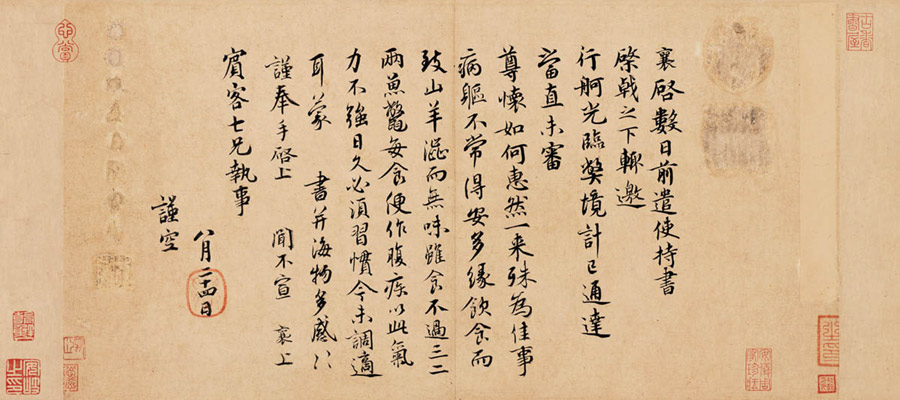 襄啓數日前遣使持書
棨戟之下輒邀
行舸光臨弊境計已通達
當直未審
尊懷如何惠然一来殊為佳事
病軀不常得安多緣飲食而
致山羊澁而無味雖食不過三二
兩魚鼈每食便作腹疾以此氣
力不強日久必須習慣今未調適
耳蒙 書并海物多感〻
謹奉手啓上 聞不宣 襄上
賓客七兄執事
八月二十四日
謹空